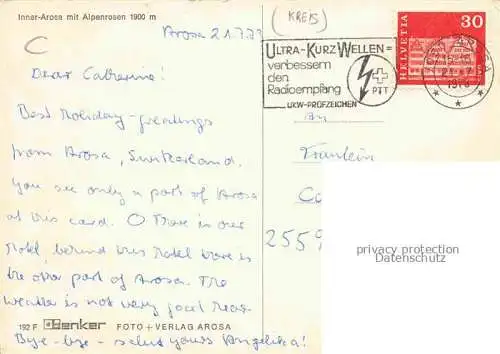 Inner-Arosa mit Alpenrosen 1900 m
(KREIS)
C
Arosa 21.7.73
ULTRA-KURZ WELLEN =
verbessern
den
Radioempfang
UKW-PRÜFZEICHEN
PTT
HELVETIA
30
AROSA
Dear Catherine!
Best Holiday-greetings
from Arosa, Switzerland.
You see only a part of Arosa
at this card. O There is our
Hotel, behind this Hotel here is
the other part of Arosa. The
Weather is not very good
Bye-bye- salut yours Angelika!
An
Fräulein
2559
privacy protection
Datenschutz
192 F Benker FOTO + VERLAG AROSA